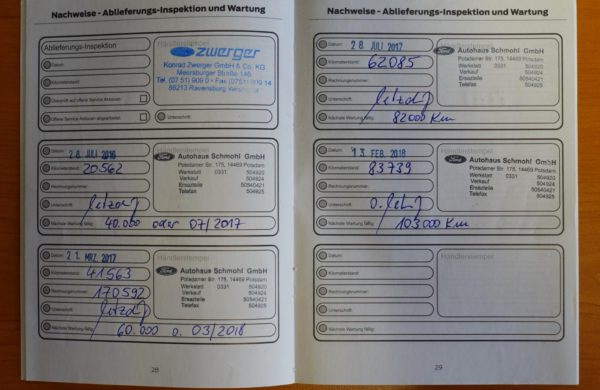 Nachweise - Ablieferungs-Inspektion und Wartung
Ablieferungs-Inspektion
Händlerstempel
Datum:
Kilometerstand:
Überprüft auf offene Service-Aktionen
Offene Service-Aktionen abgearbeitet
Unterschrift:
zwerger
Konrad Zwerger GmbH & Co. KG
Meersburger Straße 146
Tel. (07 51) 909 0 • Fax (0751) 909 14
88213 Ravensburg
Datum:
28. JULI 2016
Kilometerstand:
20562
Rechnungsnummer:
Unterschrift:
Nächste Wartung fällig:
40.000 oder 07/2017
Händlerstempel
Ford
Autohaus Schmohl GmbH
Potsdamer Str. 175, 14469 Potsdam
Werkstatt 0331 504920
Verkauf 504924
Ersatzteile 50540421
Telefax 504925
Datum:
21. MRZ. 2017
Kilometerstand:
41563
Rechnungsnummer:
170592
Unterschrift:
Nächste Wartung fällig:
60.000 o. 03/2018
Händlerstempel
Ford
Autohaus Schmohl GmbH
Potsdamer Str. 175, 14469 Potsdam
Werkstatt 0331 504920
Verkauf 504924
Ersatzteile 50540421
Telefax 504925
28
Nachweise - Ablieferungs-Inspektion und Wartung
Datum:
28. JULI 2017
Kilometerstand:
62085
Rechnungsnummer:
Unterschrift:
Nächste Wartung fällig:
82000 Km
Händlerstempel
Ford
Autohaus Schmohl GmbH
Potsdamer Str. 175, 14469 Potsdam
Werkstatt 0331 504920
Verkauf 504924
Ersatzteile 50540421
Telefax 504925
Datum:
13. FEB. 2018
Kilometerstand:
83739
Rechnungsnummer:
Unterschrift:
Nächste Wartung fällig:
103000 Km
Händlerstempel
Ford
Autohaus Schmohl GmbH
Potsdamer Str. 175, 14469 Potsdam
Werkstatt 0331 504920
Verkauf 504924
Ersatzteile 50540421
Telefax 504925
Datum:
Kilometerstand:
Rechnungsnummer:
Unterschrift:
Nächste Wartung fällig:
Händlerstempel
29